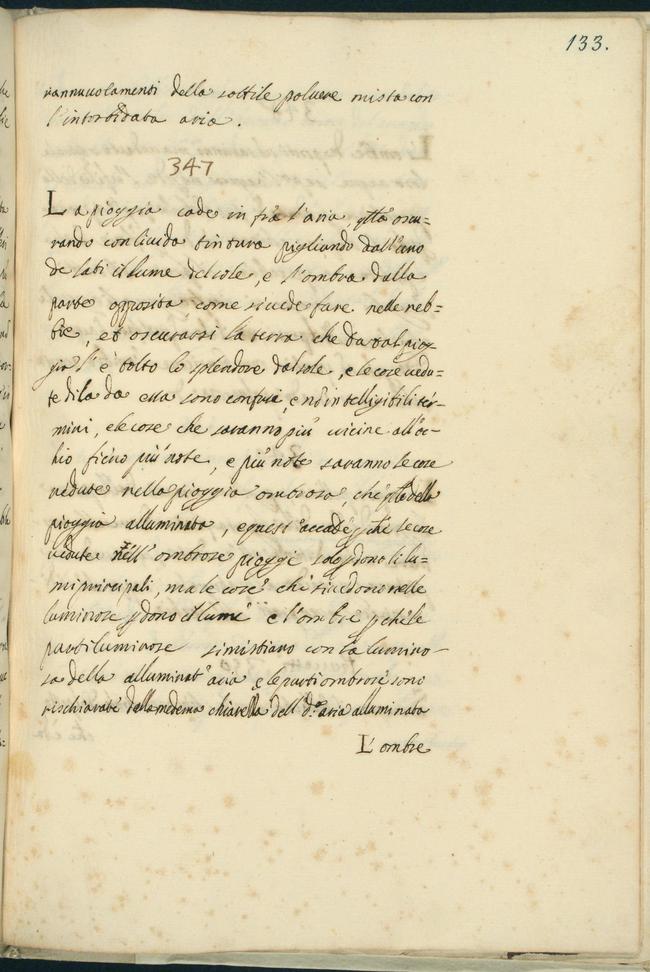 133.
rannuvolamenti della sottile polvere mista con
l'intorbidata aria.
347
La pioggia cade in frà l'aria qlla oscu=
rando con livida tintura pigliando dall'uno
de lati il lume del sole, e l'ombra dalla
parte opposita come si vede fare nelle neb=
bie, et oscurarsi la terra che da tal piog
gia l'è tolto lo splendore dal sole, e le cose vedu=
te di la da essa sono confuse, e nō intelligibili tér=
mini, e le cose che saranno più vicine all'oc=
hio fieno più note, e più note saranno le cose
vedute nella pioggia ombrosa, che qlle della
pioggia alluminata, e quest'accade pche le cose
vedute nell'ombrose pioggi solo pdono li lu=
mi principali, ma le cose che si vedono nelle
luminose pdono il lume e l'ombre pche le
parti luminose si mistiano con la lumino=
sa della alluminat'aria e le parti ombrose sono
rischiarate dalla medema chiarezza dell'd.ª aria alluminata
L'ombre